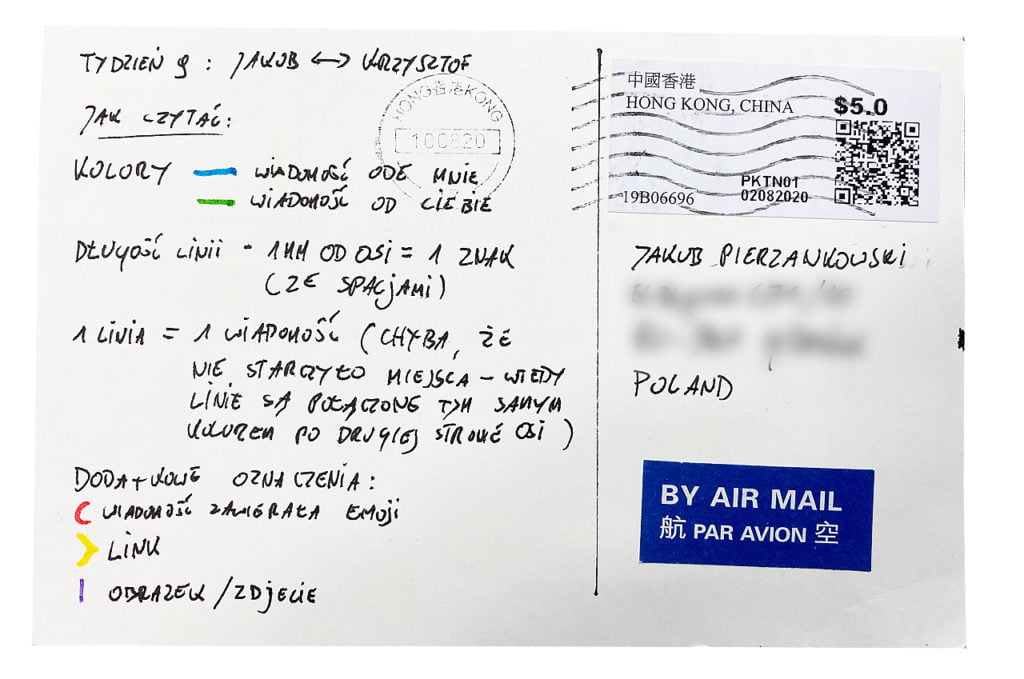 TYDZIEŃ 9 : JAKUB ↔ KRZYSZTOF
JAK CZYTAĆ:
KOLORY — WIADOMOŚĆ ODE MNIE
— WIADOMOŚĆ OD CIEBIE
DŁUGOŚĆ LINII - 1 MM OD OSI = 1 ZNAK
(ZE SPACJAMI)
1 LINIA = 1 WIADOMOŚĆ (CHYBA, ŻE
NIE STARCZYŁO MIEJSCA – WTEDY
LINIE SĄ POŁĄCZONE TYM SAMYM
KOLOREM PO DRUGIEJ STRONIE OSI)
DODATKOWE OZNACZENIA:
WIADOMOŚĆ ZAWIERAŁA EMOJI
LINK
OBRAZEK / ZDJĘCIE
HONG 香港 KONG
100820
中國香港
HONG KONG, CHINA
$5.0
PKTN01
19B06696 02082020
JAKUB PIERZANKOWSKI
POLAND
BY AIR MAIL
航 PAR AVION 空